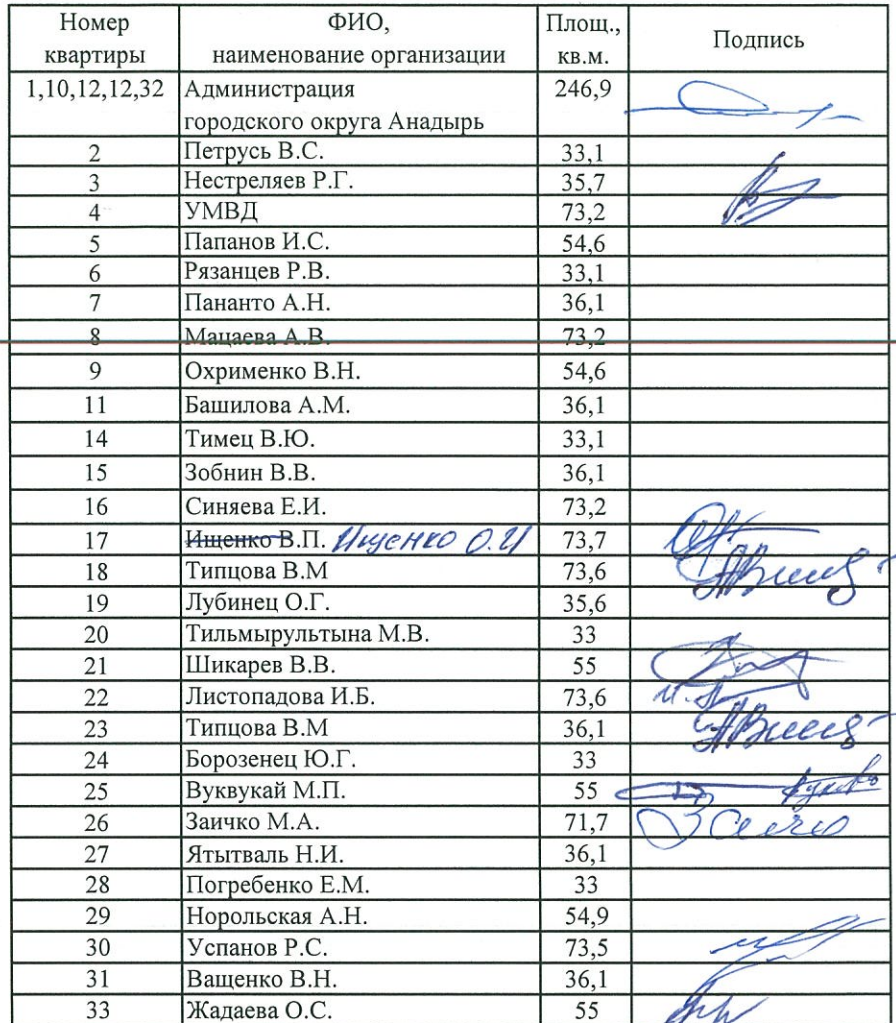 Номер квартиры ФИО, наименование организации Площ., кв.м. Подпись
1,10,12,12,32 Администрация городского округа Анадырь 246,9
2 Петрусь В.С. 33,1
3 Нестреляев Р.Г. 35,7
4 УМВД 73,2
5 Папанов И.С. 54,6
6 Рязанцев Р.В. 33,1
7 Пананто А.Н. 36,1
8 Мацаева А.В. 73,2
9 Охрименко В.Н. 54,6
11 Башилова А.М. 36,1
14 Тимец В.Ю. 33,1
15 Зобнин В.В. 36,1
16 Синяева Е.И. 73,2
17 Ищенко В.П. Ищенко О.И 73,7
18 Типцова В.М 73,6
19 Лубинец О.Г. 35,6
20 Тильмырультына М.В. 33
21 Шикарев В.В. 55
22 Листопадова И.Б. 73,6
23 Типцова В.М 36,1
24 Борозенец Ю.Г. 33
25 Вуквукай М.П. 55
26 Заичко М.А. 71,7
27 Ятытваль Н.И. 36,1
28 Погребенко Е.М. 33
29 Норольская А.Н. 54,9
30 Успанов Р.С. 73,5
31 Ващенко В.Н. 36,1
33 Жадаева О.С. 55